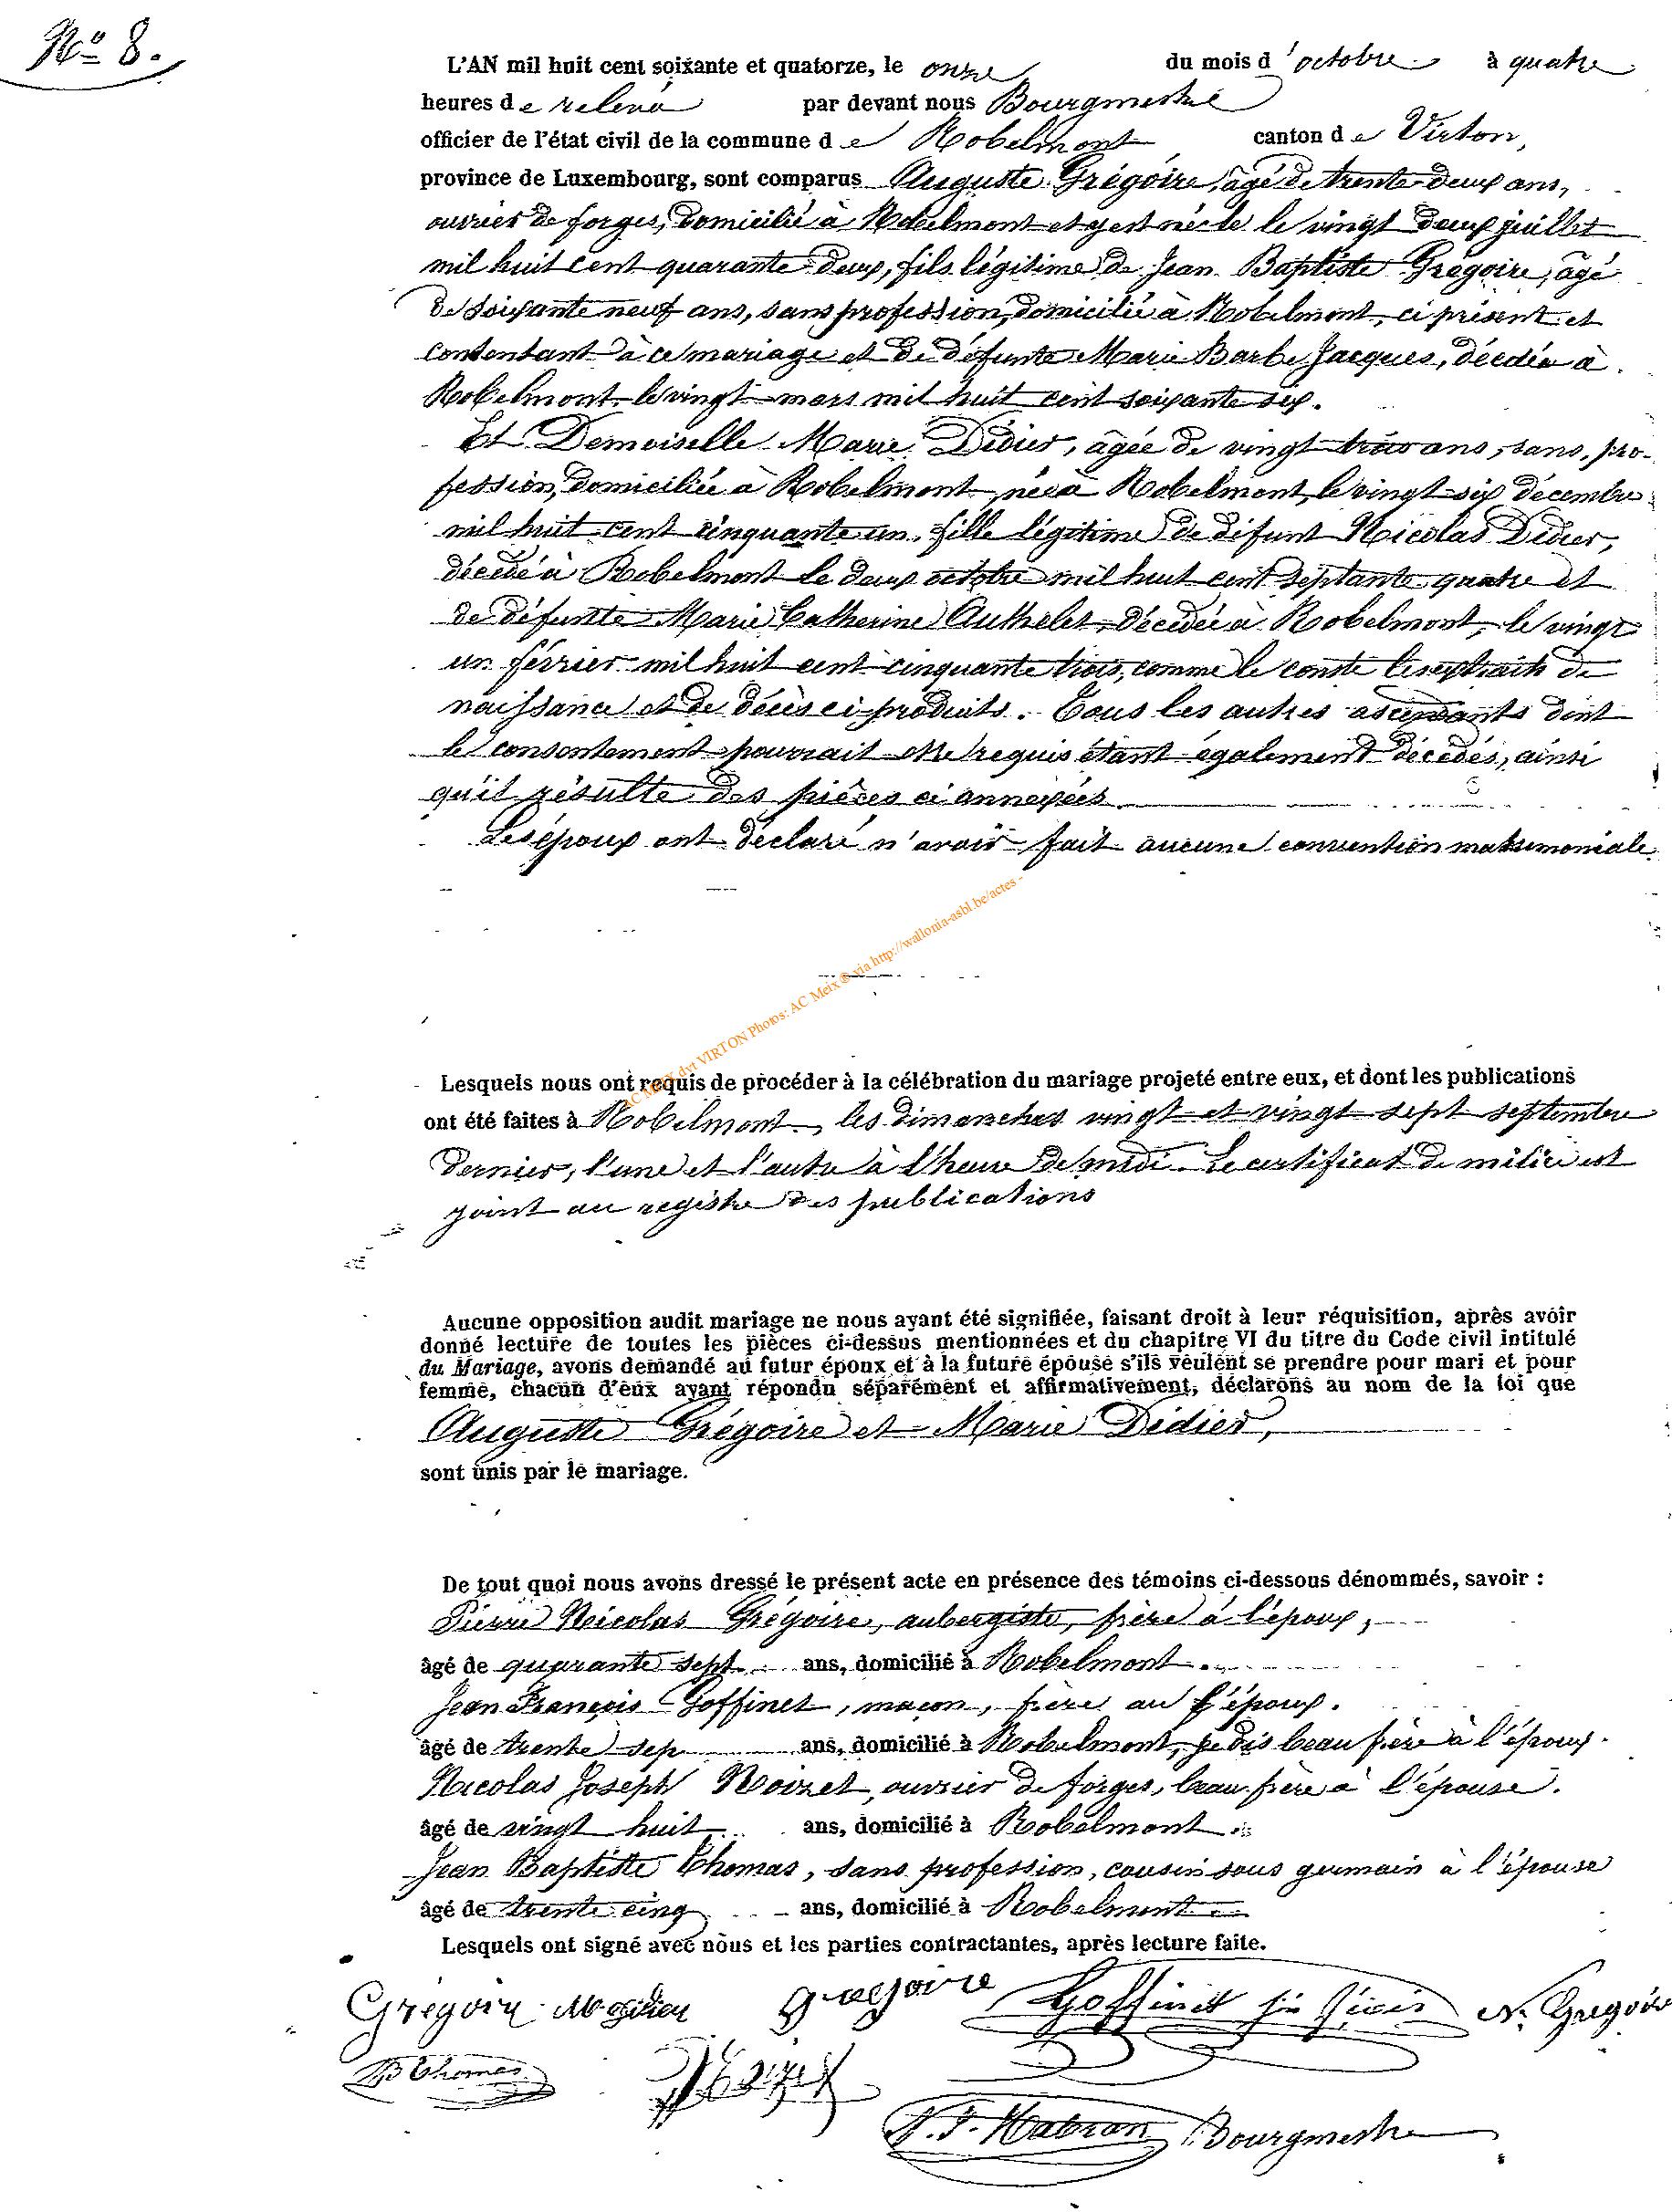 No 8.
L'AN mil huit cent soixante et quatorze, le onze du mois d'octobre à quatre
heures de relevée par devant nous Bourgmestre
officier de l'état civil de la commune de Robelmont canton de Virton,
province de Luxembourg, sont comparus Auguste Grégoire, âgé de trente-deux ans,
ouvrier de forges, domicilié à Robelmont et y est né le le vingt deux juillet
mil huit cent quarante-deux, fils légitime de Jean Baptiste Grégoire, âgé
de soixante neuf ans, sans profession, domicilié à Robelmont, ci présent et
consentant à ce mariage et de défunte Marie Barbe Jacques, décédée à
Robelmont le vingt mars mil huit cent soixante six.
Et Demoiselle Marie Didier, âgée de vingt trois ans, sans pro-
fession, domiciliée à Robelmont, née à Robelmont, le vingt-six décembre
mil huit cent cinquante un, fille légitime de défunt Nicolas Didier,
décédé à Robelmont le deux octobre mil huit cent septante quatre et
de défunte Marie Catherine Authelet, décédée à Robelmont, le vingt
un février mil huit cent cinquante trois, comme le conste les extraits de
naissance et de décès ci-produits. Tous les autres ascendants dont
le consentement pourrait être requis étant également décédés, ainsi
qu'il résulte des pièces ci annexées
Les époux ont déclaré n'avoir fait aucune convention matrimoniale.
AC MEIX dvt VIRTON Photos: AC Meix © via http://wallonia-asbl.be/actes -
Lesquels nous ont requis de procéder à la célébration du mariage projeté entre eux, et dont les publications
ont été faites à Robelmont, les dimanches vingt et vingt sept septembre
dernier, l'une et l'autre à l'heure de midi. Le certificat de milice est
joint au registre des publications
Aucune opposition audit mariage ne nous ayant été signifiée, faisant droit à leur réquisition, après avoir
donné lecture de toutes les pièces ci-dessus mentionnées et du chapitre VI du titre du Code civil intitulé
du Mariage, avons demandé au futur époux et à la future épouse s'ils veulent se prendre pour mari et pour
femme, chacun d'eux ayant répondu séparément et affirmativement, déclarons au nom de la loi que
Auguste Grégoire et Marie Didier,
sont unis par le mariage.
De tout quoi nous avons dressé le présent acte en présence des témoins ci-dessous dénommés, savoir :
Pierre Nicolas Grégoire, aubergiste, frère à l'époux,
âgé de quarante sept ans, domicilié à Robelmont.
Jean François Goffinet, maçon, frère au l'époux.
âgé de trente sep ans, domicilié à Robelmont, je dis beau frère à l'époux.
Nicolas Joseph Noizet, ouvrier de forges, beau frère à l'épouse.
âgé de vingt huit ans, domicilié à Robelmont.
Jean Baptiste Thomas, sans profession, cousin sous germain à l'épouse
âgé de trente cinq ans, domicilié à Robelmont
Lesquels ont signé avec nous et les parties contractantes, après lecture faite.
Grégoire M Didier Gregoire Goffinet N. Gregoire
JB Thomas Noizet
Habran Bourgmestre